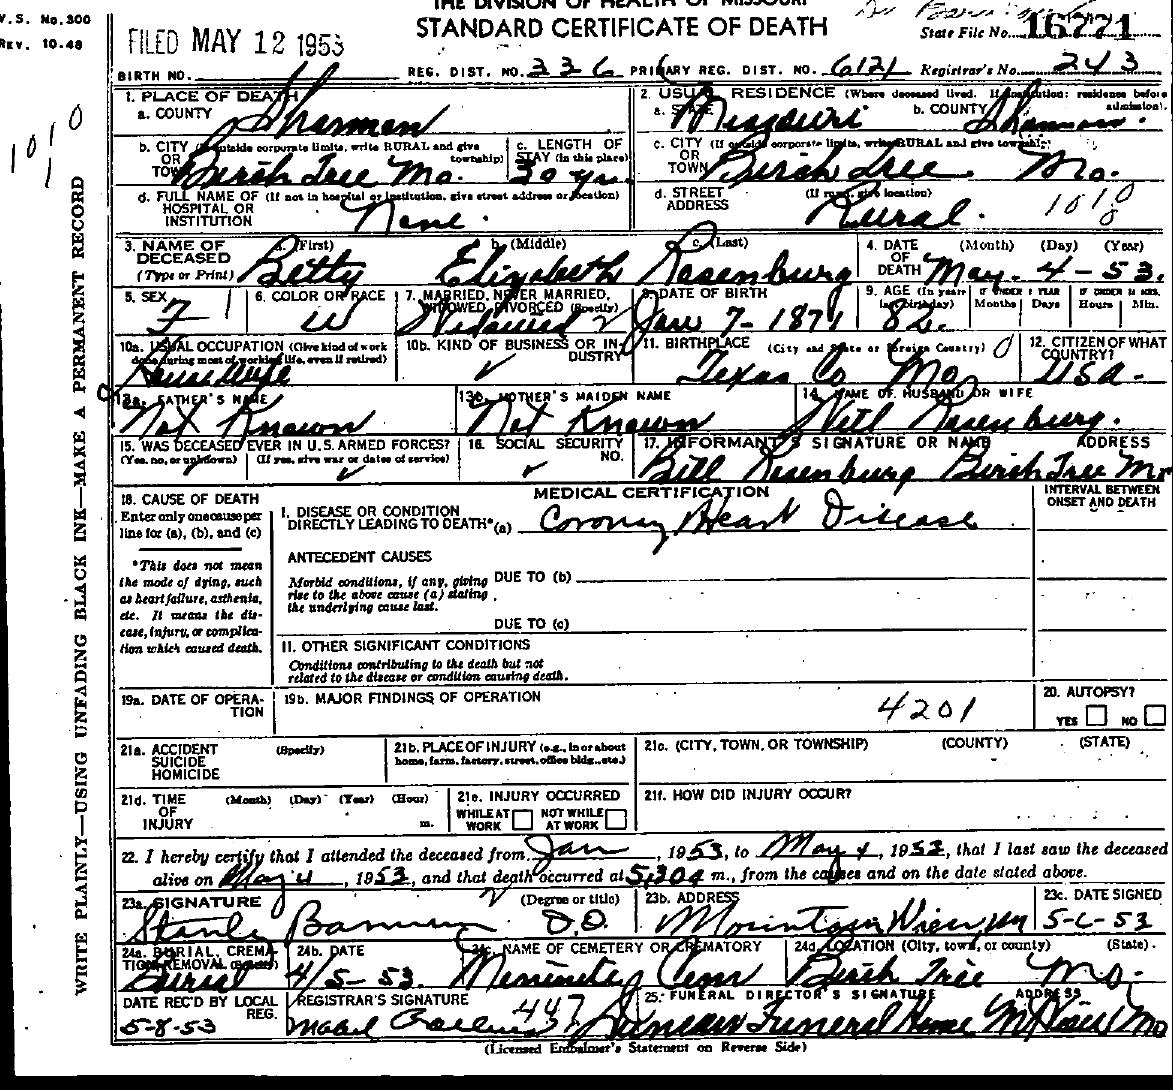 V.S. No. 300
REV. 10-48
THE DIVISION OF HEALTH OF MISSOURI
STANDARD CERTIFICATE OF DEATH
State File No. 16771
FILED MAY 12 1953
BIRTH NO. REG. DIST. NO. 336 PRIMARY REG. DIST. NO. 6121 Registrar's No. 243
1. PLACE OF DEATH
a. COUNTY Shannon
2. USUAL RESIDENCE (Where deceased lived. If institution: residence before admission).
a. STATE Missouri b. COUNTY Shannon
b. CITY (If outside corporate limits, write RURAL and give township) OR TOWN Birch Tree Mo.
c. LENGTH OF STAY (in this place) 30 yrs.
c. CITY (If outside corporate limits, write RURAL and give township) OR TOWN Birch Tree Mo.
d. FULL NAME OF (If not in hospital or institution, give street address or location) HOSPITAL OR INSTITUTION None.
d. STREET ADDRESS (If rural, give location) Rural. 1010
0
1010
1
WRITE PLAINLY—USING UNFADING BLACK INK—MAKE A PERMANENT RECORD
3. NAME OF DECEASED (Type or Print) a. (First) Betty b. (Middle) Elizabeth c. (Last) Rosenburg
4. DATE OF DEATH (Month) (Day) (Year) May - 4 - 53.
5. SEX F 1
6. COLOR OR RACE W
7. MARRIED, NEVER MARRIED, WIDOWED, DIVORCED (Specify) Widowed 2
8. DATE OF BIRTH Jan 7 - 1871
9. AGE (In years last birthday) 82. IF UNDER 1 YEAR Months Days IF UNDER 24 HRS. Hours Min.
10a. USUAL OCCUPATION (Give kind of work done during most of working life, even if retired) Housewife
10b. KIND OF BUSINESS OR INDUSTRY
11. BIRTHPLACE (City and State or Foreign Country) 0 Texas Co Mo
12. CITIZEN OF WHAT COUNTRY? USA -
13a. FATHER'S NAME Not Known
13b. MOTHER'S MAIDEN NAME Not Known
14. NAME OF HUSBAND OR WIFE Will Rosenburg.
15. WAS DECEASED EVER IN U.S. ARMED FORCES? (Yes, no, or unknown) (If yes, give war or dates of service)
16. SOCIAL SECURITY NO.
17. INFORMANT'S SIGNATURE OR NAME ADDRESS
Bill Rosenburg Birch Tree Mo
18. CAUSE OF DEATH
Enter only one cause per line for (a), (b), and (c)
*This does not mean the mode of dying, such as heart failure, asthenia, etc. It means the disease, injury, or complication which caused death.
MEDICAL CERTIFICATION
INTERVAL BETWEEN ONSET AND DEATH
I. DISEASE OR CONDITION DIRECTLY LEADING TO DEATH* (a) Coronary Heart Disease
ANTECEDENT CAUSES
Morbid conditions, if any, giving rise to the above cause (a) stating the underlying cause last.
DUE TO (b)
DUE TO (c)
II. OTHER SIGNIFICANT CONDITIONS
Conditions contributing to the death but not related to the disease or condition causing death.
19a. DATE OF OPERATION
19b. MAJOR FINDINGS OF OPERATION
4201
20. AUTOPSY?
YES NO
21a. ACCIDENT SUICIDE HOMICIDE (Specify)
21b. PLACE OF INJURY (e.g., in or about home, farm, factory, street, office bldg., etc.)
21c. (CITY, TOWN, OR TOWNSHIP) (COUNTY) (STATE)
21d. TIME OF INJURY (Month) (Day) (Year) (Hour) m.
21e. INJURY OCCURRED
WHILE AT WORK NOT WHILE AT WORK
21f. HOW DID INJURY OCCUR?
22. I hereby certify that I attended the deceased from Jan, 1953, to May 4, 1953, that I last saw the deceased
alive on May 4, 1953, and that death occurred at 5:30a m., from the causes and on the date stated above.
23a. SIGNATURE (Degree or title) D.O.
23b. ADDRESS Mountain View, Mo
23c. DATE SIGNED 5-6-53
24a. BURIAL, CREMATION, REMOVAL (Specify) Burial
24b. DATE 4/5-53.
24c. NAME OF CEMETERY OR CREMATORY Cem
24d. LOCATION (City, town, or county) (State) Birch Tree Mo.
DATE REC'D BY LOCAL REG. 5-8-53
REGISTRAR'S SIGNATURE 447
Mabel
25. FUNERAL DIRECTOR'S SIGNATURE ADDRESS
Duncan Funeral Home Mt View Mo
(Licensed Embalmer's Statement on Reverse Side)